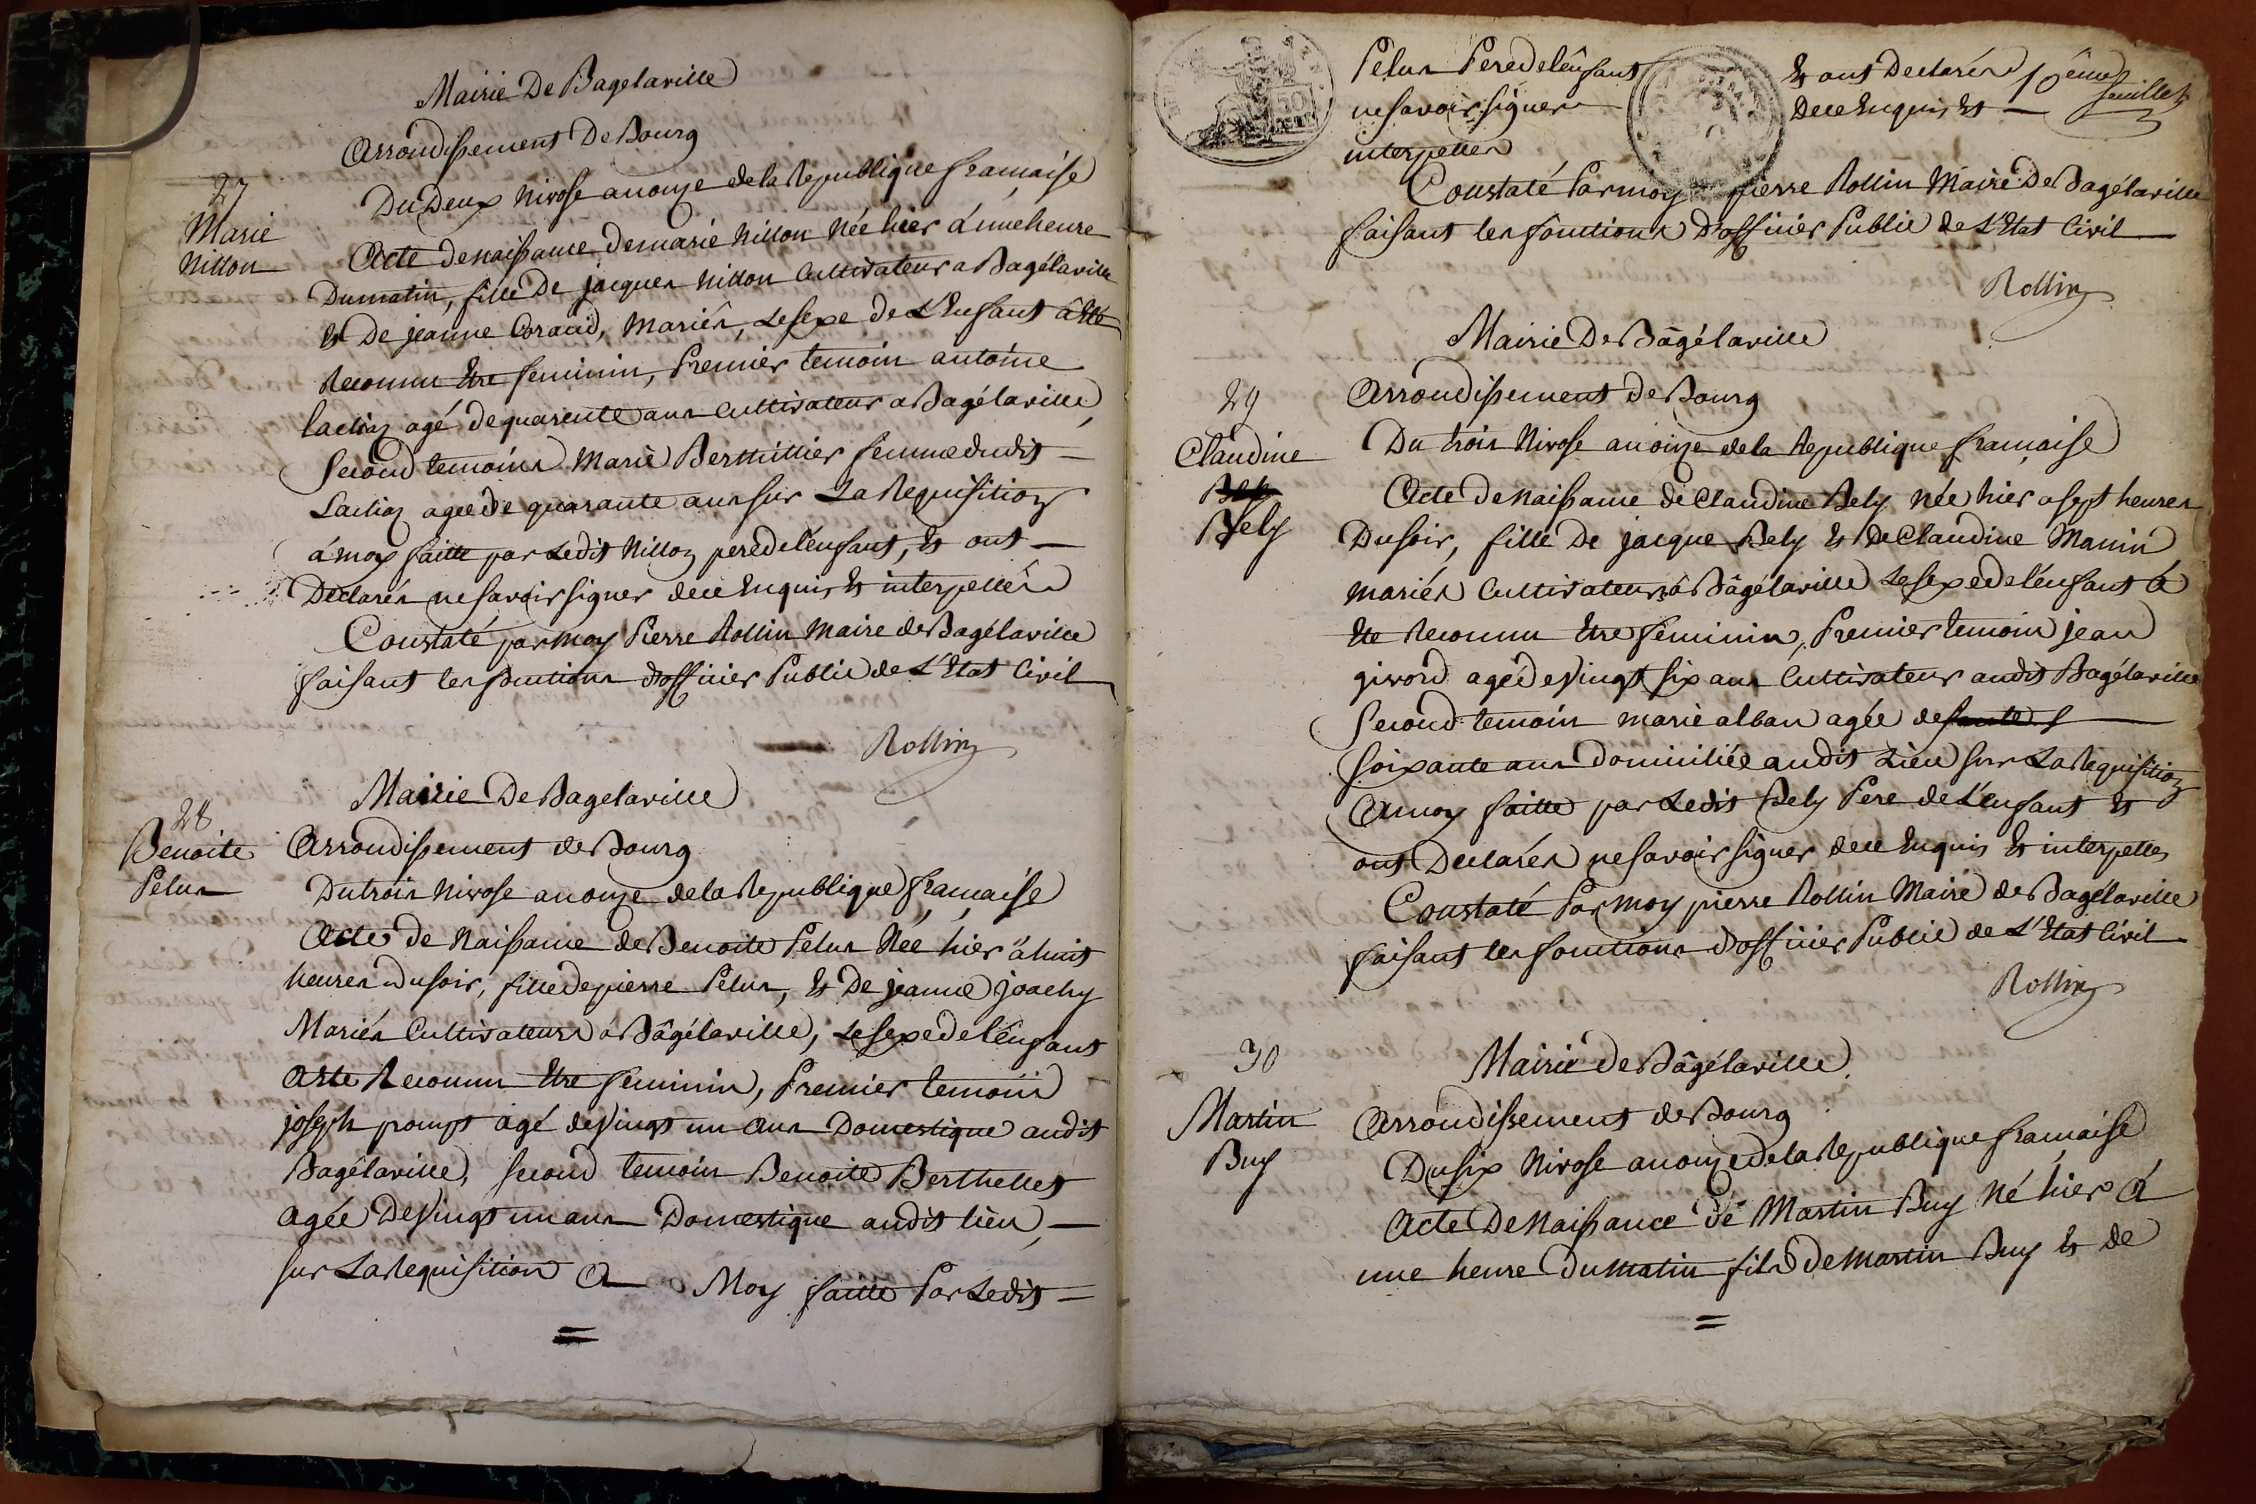 Mairie De Bagelaville
Arrondissement De Bourg
27
Marie
Nillon
Du Deux Nivose an onze de la Republique francaise
Acte de naissance de marie Nillon Née hier á une heure
Du matin, fille De jacques Nillon Cultivateur a Bagélaville
et De jeanne Coraud, Mariés, Le sexe de L'Enfant â Eté
Reconnu Etre feminin, Premier temoin antoine
laclin agé de quarente ans Cultivateur a Bagélaville,
Second temoins Marie Berthillier femme dudit
Laclin agée de quarante ans sur La Requisition
á moy faitte par Ledit Nillon pere de l'enfant, et ont
Declarés ne savoir signer de ce Enquis et interpellés
Constaté par moy Pierre Rollin Maire de Bagélaville
faisant les fonctions d'officier Public de L'Etat Civil
Rollin
28
Benoite
Pelus
Mairie De Bagelaville
Arrondissement de Bourg
Du trois Nivose an onze de la Republique francaise
Acte de Naissance de Benoite Pelus Née hier á huit
heures du soir, fille de pierre Pelus, et De jeanne joachy
Mariés Cultivateurs á Bâgélaville, Le sexe de l'enfant
a ete Reconnu Etre feminin, Premier temoin
joseph pompt agé de Vingt un ans Domestique audit
Bagélaville, second temoin Benoite Berthellet
agée De Vingt un ans Domestique audit lieu,
sur La Requisition A Moy faitte Par Ledit
Pelus Pere de l'enfant et ont Declarés 10ême feuillet
ne savoir signer De ce Enquis et
interpellés
Constaté Par moy pierre Rollin Maire De Bagélaville
faisant les fonctions D'officier Public de L'Etat Civil
Rollin
Mairie De Bâgélaville
29
Claudine
Bely
Bely
Arrondissement de Bourg
Du trois Nivose an onze de la Republique francaise
Acte de Naissance de Claudine Bely Née hier a sept heures
Du soir, fille De jacque Bely et De Claudine Manin
mariés Cultivateurs á Bâgélaville Le sexe de l'enfant á
Ete Reconnu Etre feminin, Premier temoin jean
girord agé de Vingt six ans Cultivateur audit Bagélaville
Second temoin marie alban agée de
soixante ans Domiciliée audit Lieu sur La Requisition
A moy faitte par Ledit Bely Pere de L'enfant et
ont Declarés ne savoir signer de ce Enquis et interpellés
Constaté Par Moy pierre Rollin Maire de Bagélaville
faisant les fonctions d'officier Public de L'Etat Civil
Rollin
30
Martin
Buy
Mairie de Bâgélaville
Arrondissement de Bourg
Du six Nivose an onze de la Republique francaise
Acte De Naissance de Martin Buy Né hier A
une heure Du matin fils De Martin Buy et de